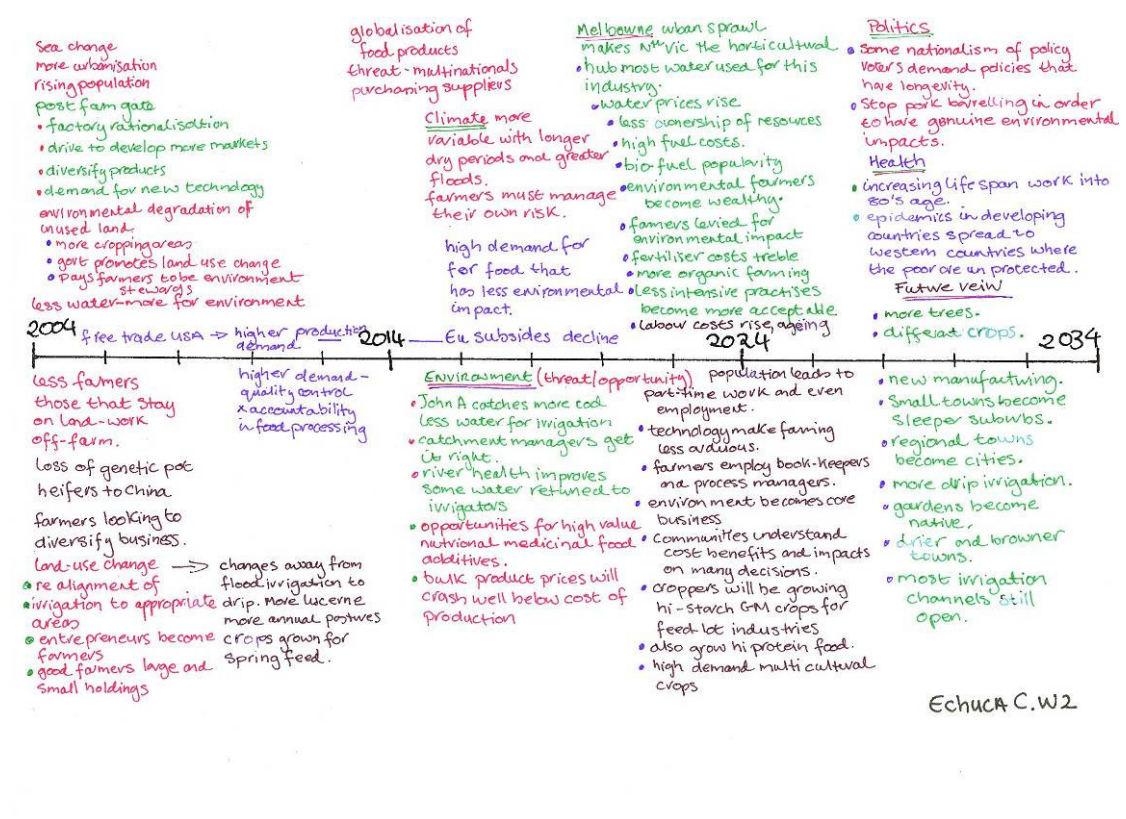 Sea change
more urbanisation
rising population
post farm gate
• factory rationalisation
• drive to develop more markets
• diversify products
• demand for new technology
environmental degradation of
unused land.
• more cropping areas
• govt promotes land use change
• pays farmers to be environment
stewards
less water-more for environment
globalisation of
food products
threat-multinationals
purchasing suppliers
Climate more
variable with longer
dry periods and greater
floods.
farmers must manage
their own risk.
high demand for
for food that
has less environmental
impact.
Melbourne urban sprawl
makes Nth Vic the horticultural
• hub most water used for this
industry.
• water prices rise
• less ownership of resources
• high fuel costs.
• bio-fuel popularity
• environmental farmers
become wealthy.
• famers levied for
environmental impact
• fertiliser costs treble
• more organic farming
• less intensive practises
become more acceptable.
• labour costs rise, ageing
Politics
• some nationalism of policy
voters demand policies that
have longevity.
• Stop pork barrelling in order
to have genuine environmental
impacts.
Health
• increasing life span work into
80's age.
• epidemics in developing
countries spread to
western countries where
the poor are un protected.
Future veiw
• more trees.
• different crops.
2004 free trade USA → higher production
demand
2014 Eu subsides decline
2024
2034
less farmers
those that stay
on land-work
off-farm.
loss of genetic pot
heifers to China
farmers looking to
diversify business.
land-use change →
• re alignment of
• irrigation to appropriate
areas
• entrepreneurs become
farmers
• good farmers large and
small holdings
higher demand-
quality control
x accountability
in food processing
changes away from
flood irrigation to
drip. More lucerne
more annual pastures
crops grown for
spring feed.
Environment (threat/opportunity)
• John A catches more cod
less water for irrigation
• catchment managers get
it right.
• river health improves
some water returned to
irrigators
• opportunities for high value
nutrional medicinal food
additives.
• bulk product prices will
crash well below cost of
production
population leads to
part-time work and even
employment.
• technology make faming
less arduous.
• farmers employ book-keepers
and process managers.
• environment becomes core
business
• communities understand
cost benefits and impacts
on many decisions.
• croppers will be growing
hi-starch GM crops for
feed-lot industries
• also grow hi protein food.
• high demand multi cultural
crops
• new manufacturing.
• Small towns become
sleeper suburbs.
• regional towns
become cities.
• more drip irrigation.
• gardens become
native.
• drier and browner
towns.
• most irrigation
channels still
open.
Echuca C.W2